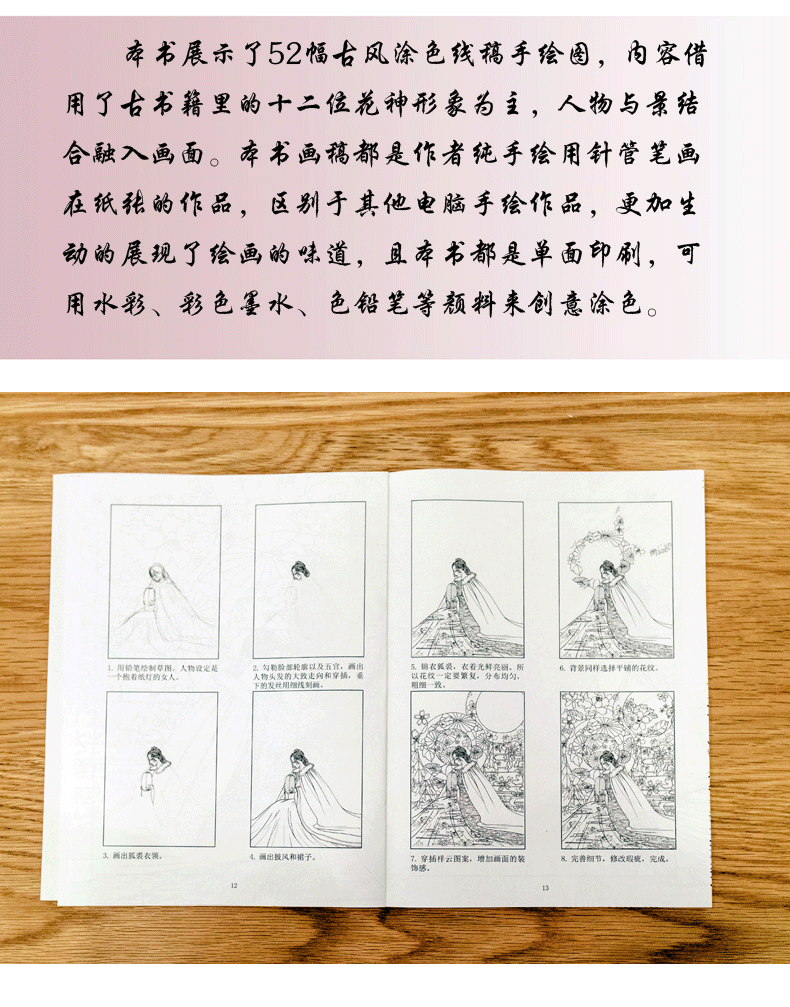 本书展示了52幅古风涂色线稿手绘图，内容借
用了古书籍里的十二位花神形象为主，人物与景结
合融入画面。本书画稿都是作者纯手绘用针管笔画
在纸张的作品，区别于其他电脑手绘作品，更加生
动的展现了绘画的味道，且本书都是单面印刷，可
用水彩、彩色墨水、色铅笔等颜料来创意涂色。
1. 用铅笔绘制草图。人物设定是
一个抱着纸灯的女人。
2. 勾勒脸部轮廓以及五官，画出
人物头发的大致走向和穿插，垂
下的发丝用细线刻画。
3. 画出狐裘衣领。
4. 画出披风和裙子。
12
5. 锦衣狐裘，衣着光鲜亮丽。所
以花纹一定要繁复，分布均匀，
粗细一致。
6. 背景同样选择平铺的花纹。
7. 穿插祥云图案，增加画面的装
饰感。
8. 完善细节，修改瑕疵，完成。
13